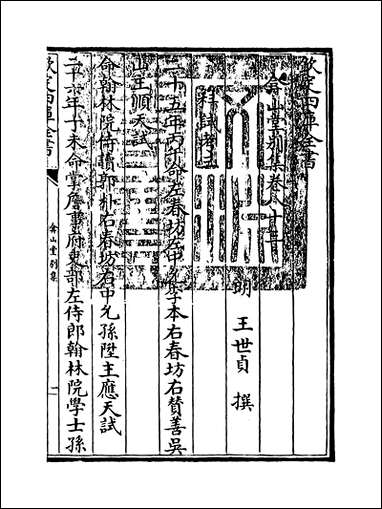 欽定四庫全書
弇山堂別集卷八十三
明 王世貞 撰
科試考三
二十五年丙午命左春坊左中允李本右春坊右贊善吳
山主順天試
命翰林院侍讀郭朴右春坊右中允孫陞主應天試
二十六年丁未命掌詹事府吏部左侍郎翰林院學士孫
欽定四庫全書
弇山堂別集
一